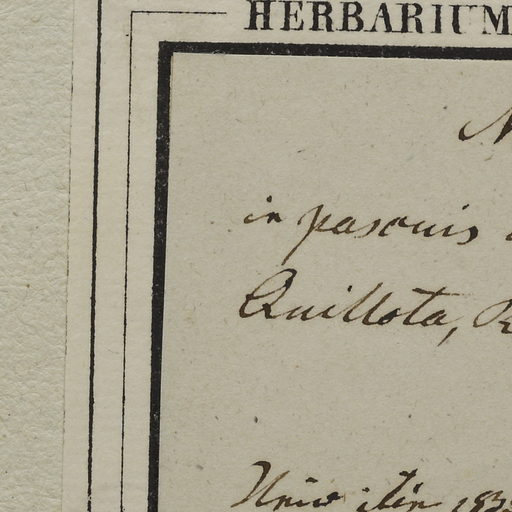 HERBARIUM
N
in pascuis
Quillota, R
Unio itin. 183